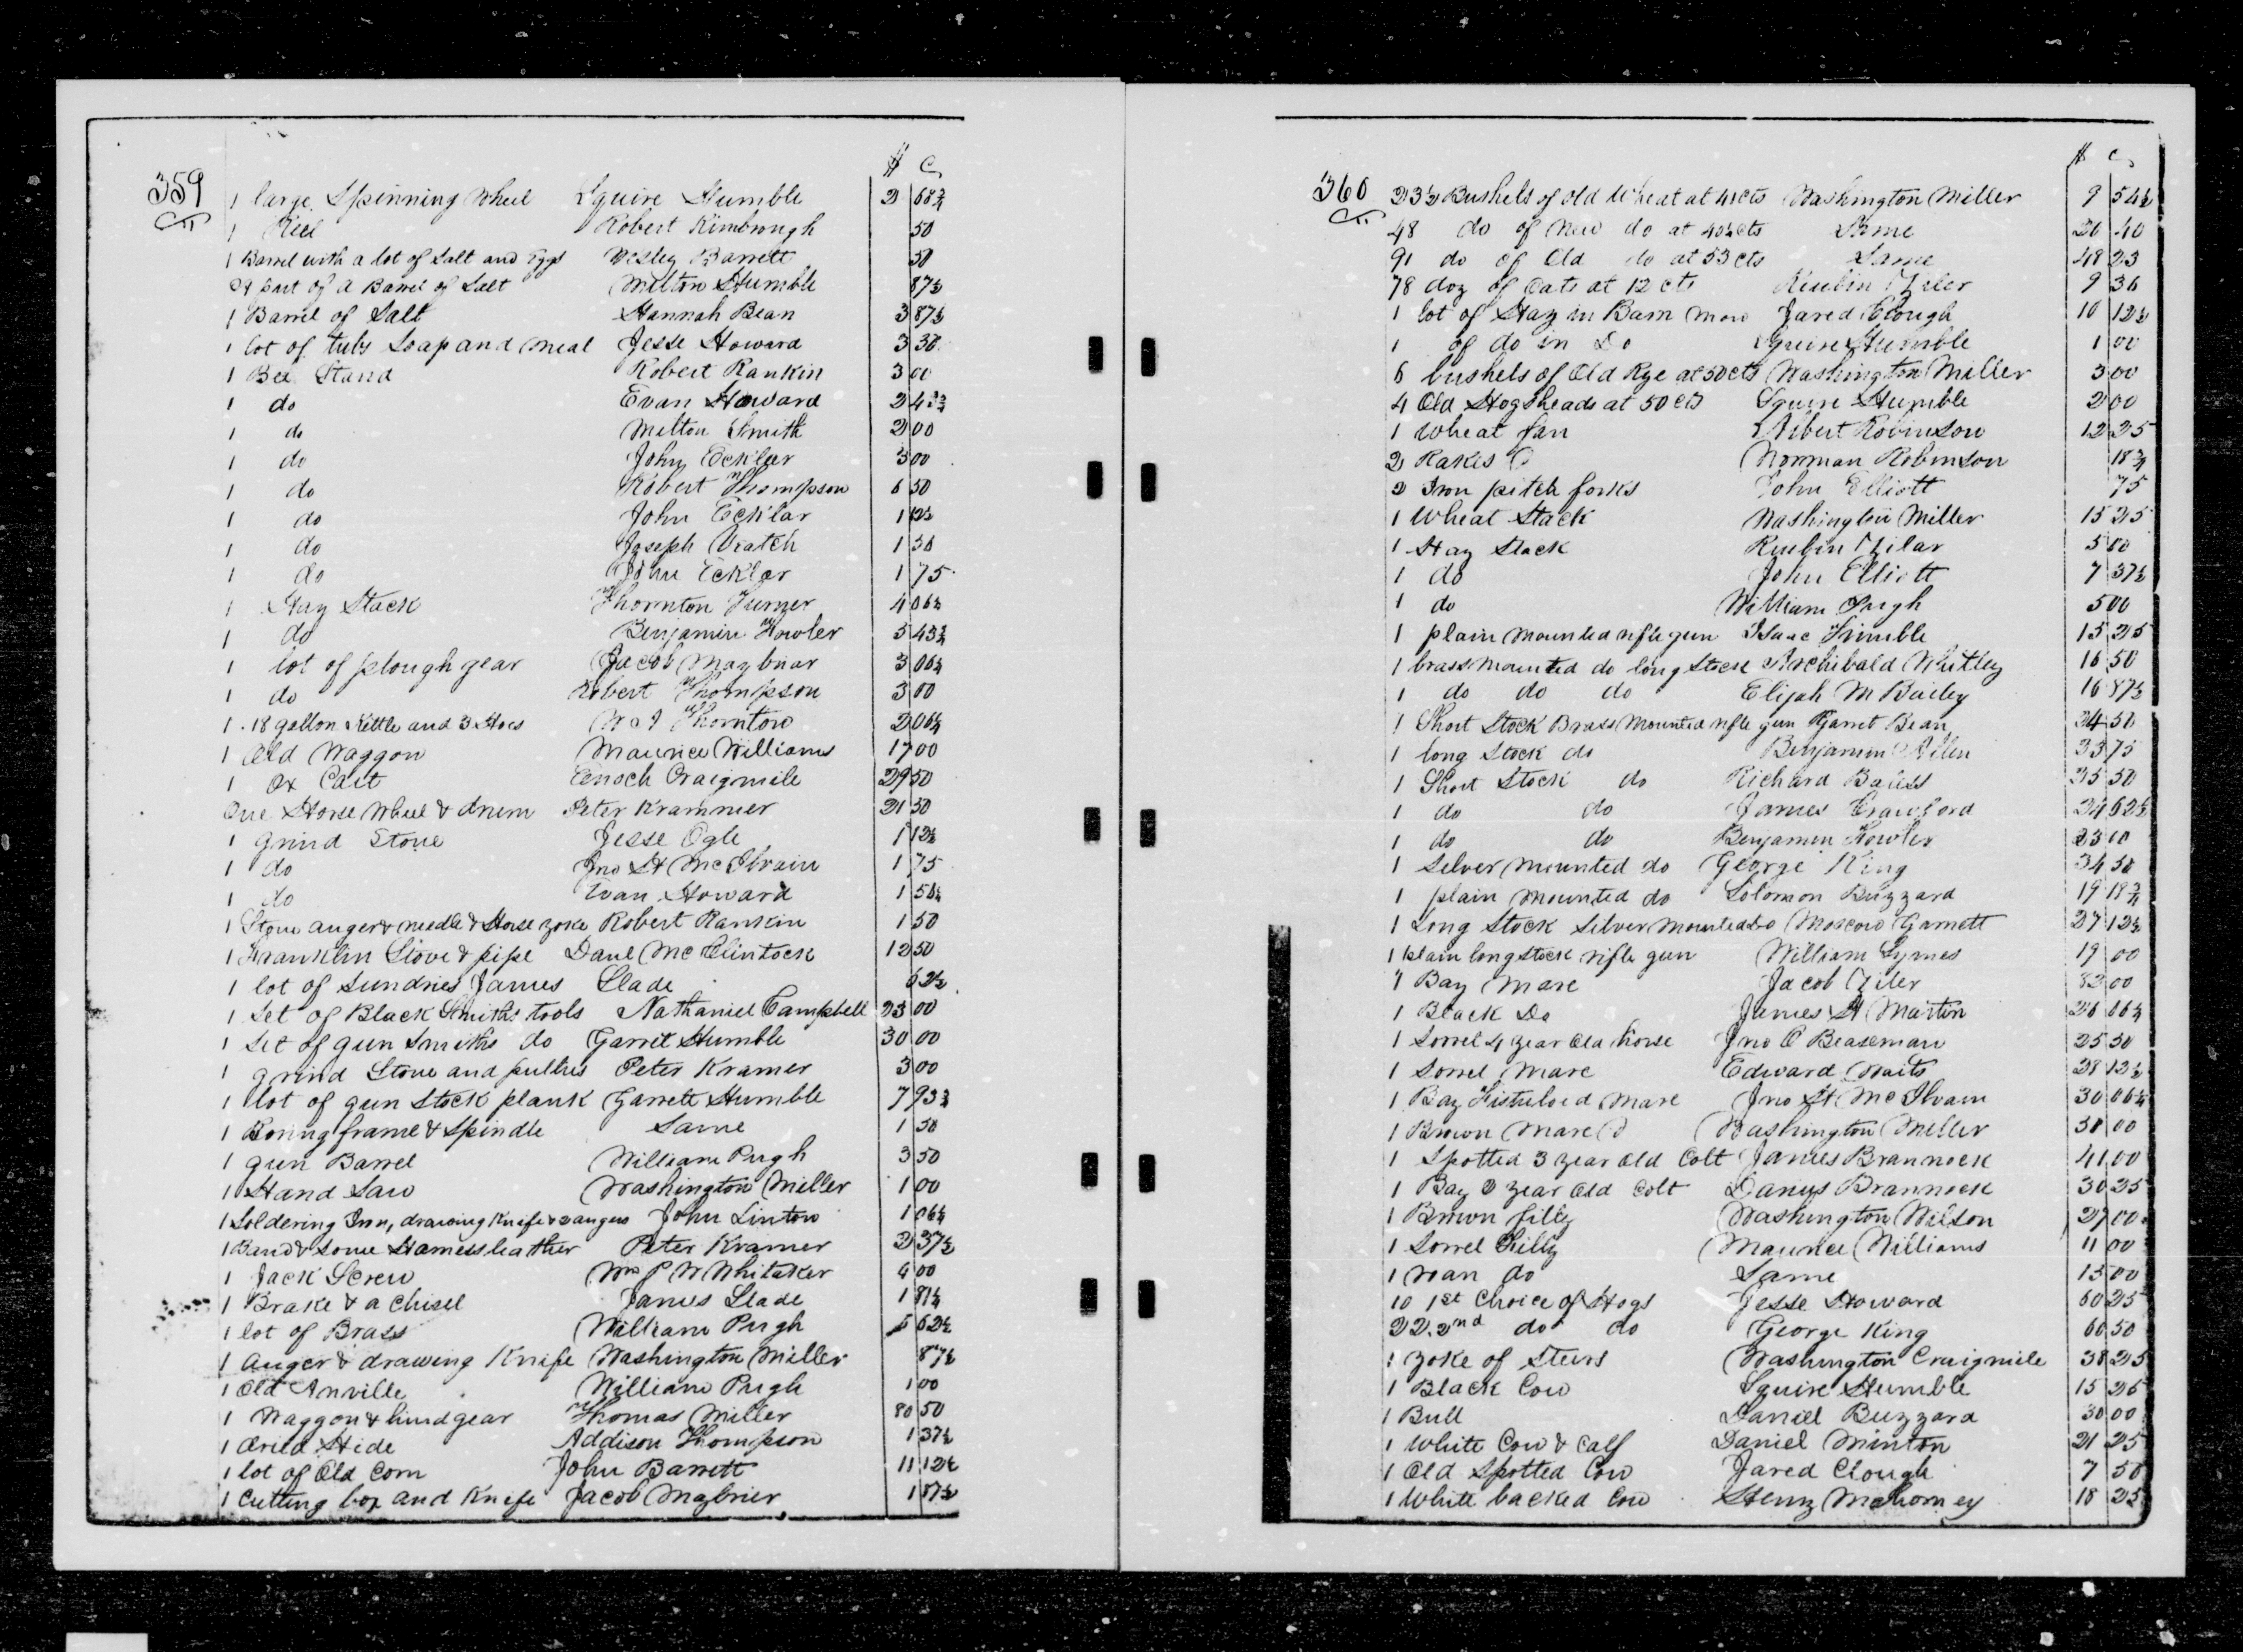 359
$ C
1 large Spinning Wheel Squire Humble 2 68¾
1 Reel Robert Kimbrough 50
1 Barrel with a lot of Salt and Eggs Wesley Barrett 50
part of a Barrel of Salt Milton Humble 87½
1 Barrel of Salt Hannah Bean 3 87½
1 lot of tubs Soap and meal Jesse Howard 3
1 Bee Stand Robert Rankin 3 00
1 do Evan Howard 2 43¾
1 do Milton Smith 2 00
1 do John Ecklar 3 00
1 do Robert Thompson 6 50
1 do John Ecklar 1 12½
1 do Joseph Veatch 1 50
1 do John Ecklar 1 75
1 Hay Stack Thornton Turner 4 06¼
1 do Benjamin Fowler 5 43¾
1 lot of plough gear Jacob Magbriar 3 06¼
1 do Robert Thompson 3 00
1 18 gallon Kettle and 3 Hoes Thornton 2 06¼
1 Old Waggon Maurice Williams 17 00
1 Ox Cart Enoch Craigmile 29 50
One Horse Wheel & drum Peter Krammer 21 50
1 grind Stone Jesse Ogle 1 12½
1 do Jno H McIlvain 1 75
1 do Evan Howard 1 56¼
1 Stone auger & needle & Horse yoke Robert Rankin 1 50
1 Franklin Stove & pipe Danl McClintock 12 50
1 lot of Sundries James Slade 62½
1 Set of Black Smiths tools Nathaniel Campbell 23 00
1 Set of gun Smiths do Garret Humble 30 00
1 grind Stone and pullies Peter Kramer 3 00
1 lot of gun Stock plank Garrett Humble 7 93¾
1 Boring frame & Spindle Same 1 50
1 gun Barrel William Pugh 3 50
1 Hand Saw Washington Miller 1 00
1 Soldering Iron, drawing Knife & 2 augers John Linton 1 06¼
1 Band & some Harness leather Peter Kramer 2 37½
1 Jack Screw Wm P W Whitaker 4 00
1 Brake & a Chisel James Slade 1 81¼
1 lot of Brass William Pugh 5 62½
1 auger & drawing Knife Washington Miller 87½
1 Old Anville William Pugh 1 00
1 Waggon & hind gear Thomas Miller 80 50
1 dried Hide Addison Thompson 1 37½
1 lot of Old Corn John Barrett 11 12½
1 Cutting box and Knife Jacob Magbrier 1 87½
360
$ C
23½ Bushels of Old Wheat at 41 cts Washington Miller 9 54½
48 do of New do at 40½ cts Same 40
91 do of Old do at 53 cts Same 48 23
78 doz of Oats at 12 cts Reubin Zeler 9 36
1 lot of Hay in Barn mow Jared Clough 10 12½
1 of do in Do Squire Humble 1 00
6 bushels of Old Rye at 50 cts Washington Miller 3 00
4 Old Hogsheads at 50 cts Squire Humble 2 00
1 Wheat fan Robinson 12 25
2 Rakes Norman Robinson 18¾
2 Iron pitch forks John Elliott 75
1 Wheat Stack Washington Miller 15 25
1 Hay Stack Reubin Zilar 5 00
1 do John Elliott 7 37½
1 do William Pugh 5 00
1 plain mounted rifle gun Isaac Trimble 15 25
1 brass mounted do long Stock Archibald Whitley 16 50
1 do do do Elijah M Bailey 16 87½
1 Short Stock Brass mounted rifle gun Garret Bean 24 50
1 long Stock do Benjamin Allen 33 75
1 Short Stock do Richard Bayless 25 50
1 do do James Crawford 24 62½
1 do do Benjamin Fowler 23 00
1 Silver mounted do George King 34 50
1 plain mounted do Solomon Buzzard 19 18¾
1 Long Stock Silver mounted do Moscow Garnett 27 12½
1 plain long Stock rifle gun William Lymes 19 00
1 Bay Mare Jacob Zeler 82 00
1 Black Do James H Martin 26 06¼
1 Sorrel 4 year old horse Jno O Beaseman 25 50
1 Sorrel Mare Edward Waits 28 12½
1 Bay Fistuloed Mare Jno H McIlvain 30 06¼
1 Brown Mare Washington Miller 30 00
1 Spotted 3 year old Colt James Brannock 41 00
1 Bay 2 year old Colt Darius Brannock 30 25
1 Brown filly Washington Wilson 27 00
1 Sorrel Filly Maurice Williams 11 00
1 roan do Same 15 00
10 1st Choice of Hogs Jesse Howard 60 25
22 2nd do do George King 60 50
1 yoke of Steers Washington Craigmile 38 25
1 Black Cow Squire Humble 15 25
1 Bull Daniel Buzzard 30 00
1 White Cow & Calf Daniel Minton 21 25
1 Old Spotted Cow Jared Clough 7 50
1 White backed Cow Henry Mahorney 18 25